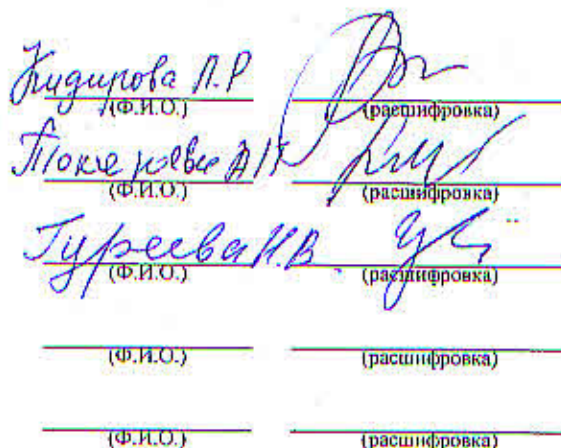 Кидирова Л.Р
(Ф.И.О.) (расшифровка)
(Ф.И.О.) (расшифровка)
Гуреева Н.В.
(Ф.И.О.) (расшифровка)
(Ф.И.О.) (расшифровка)
(Ф.И.О.) (расшифровка)